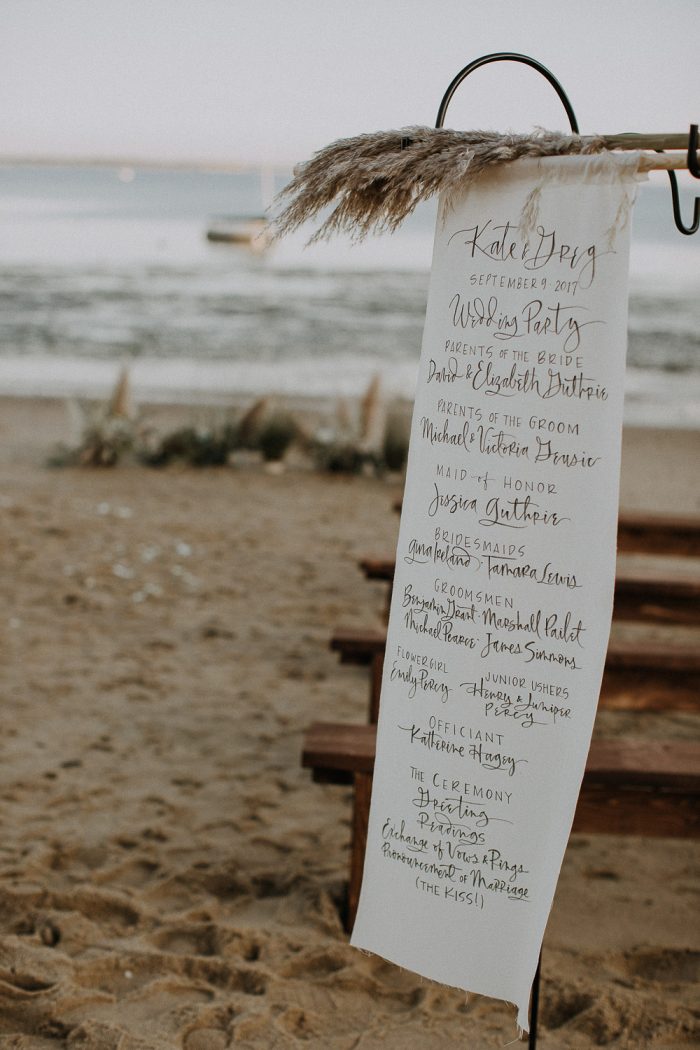 Kate & Greg
SEPTEMBER 9 · 2017
Wedding Party
PARENTS OF THE BRIDE
David & Elizabeth Guthrie
PARENTS OF THE GROOM
Michael & Victoria
MAID of HONOR
Jessica Guthrie
BRIDESMAIDS
Gina Ireland · Tamara Lewis
GROOMSMEN
Benjamin Grant · Marshall Pailet
Michael Pearce · James Simmons
FLOWERGIRL
Emily Percy
JUNIOR USHERS
Henry & Juniper
PERCY
OFFICIANT
Katherine Hagey
THE CEREMONY
Greeting
Readings
Exchange of Vows & Rings
Pronouncement of Marriage
(THE KISS!)